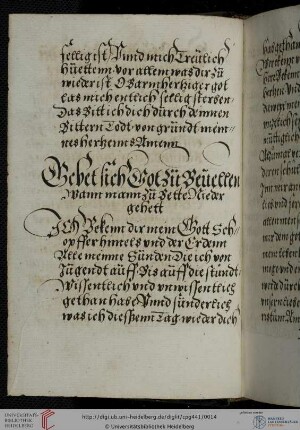 sellig ist Vnnd mich Treulich
hüettenn vor allem was dir zu
wieder ist O Barmhertziger got
las mich entlich sellig sterben
Das Bitt ich dich durch deinnen
Bittern Todt von gründt mein=
nes hertzenns Amenn
Gebet sich Got zu Beuellen
Wann mann zu Bette Nieder
gehett
Ich Bekenn dir mein Gott Sch=
opffer himels vnd der Erdenn
Alle meinne Sünden Die ich von
Jugendt auff Bis auff die stundt
Wissentlich vnd vnwissentlich
gethan habe Vnnd sünderlich
was ich diessenn Tag wieder dich
UNIVERSITÄTS-
BIBLIOTHEK
HEIDELBERG
http://digi.ub.uni-heidelberg.de/diglit/cpg441/0014
© Universitätsbibliothek Heidelberg